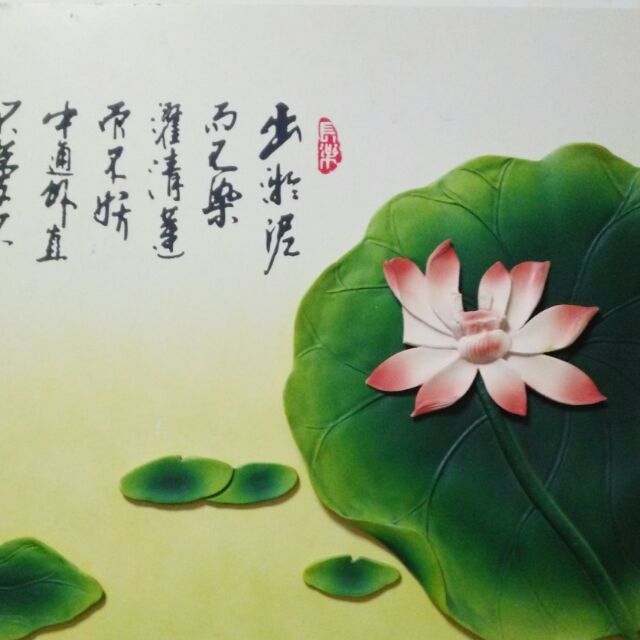 長樂
出淤泥
而不染
濯清蓮
而不妖
中通外直
不蔓不